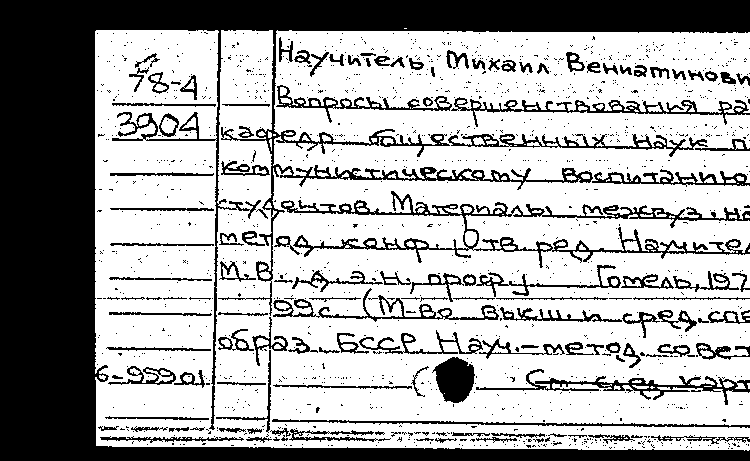 Научитель, Михаил Вениаминови
78-4
Вопросы совершенствования ра
3904
кафедр общественных наук п
коммунистическому воспитанию
студентов. Материалы межвуз. на
метод. конф. [Отв. ред. Научител
М.В., д. э. н., проф.]. Гомель, 197
99 с. (М-во высш. и сред. спе
образ. БССР. Науч.-метод. совет
6-95901
( См след карт